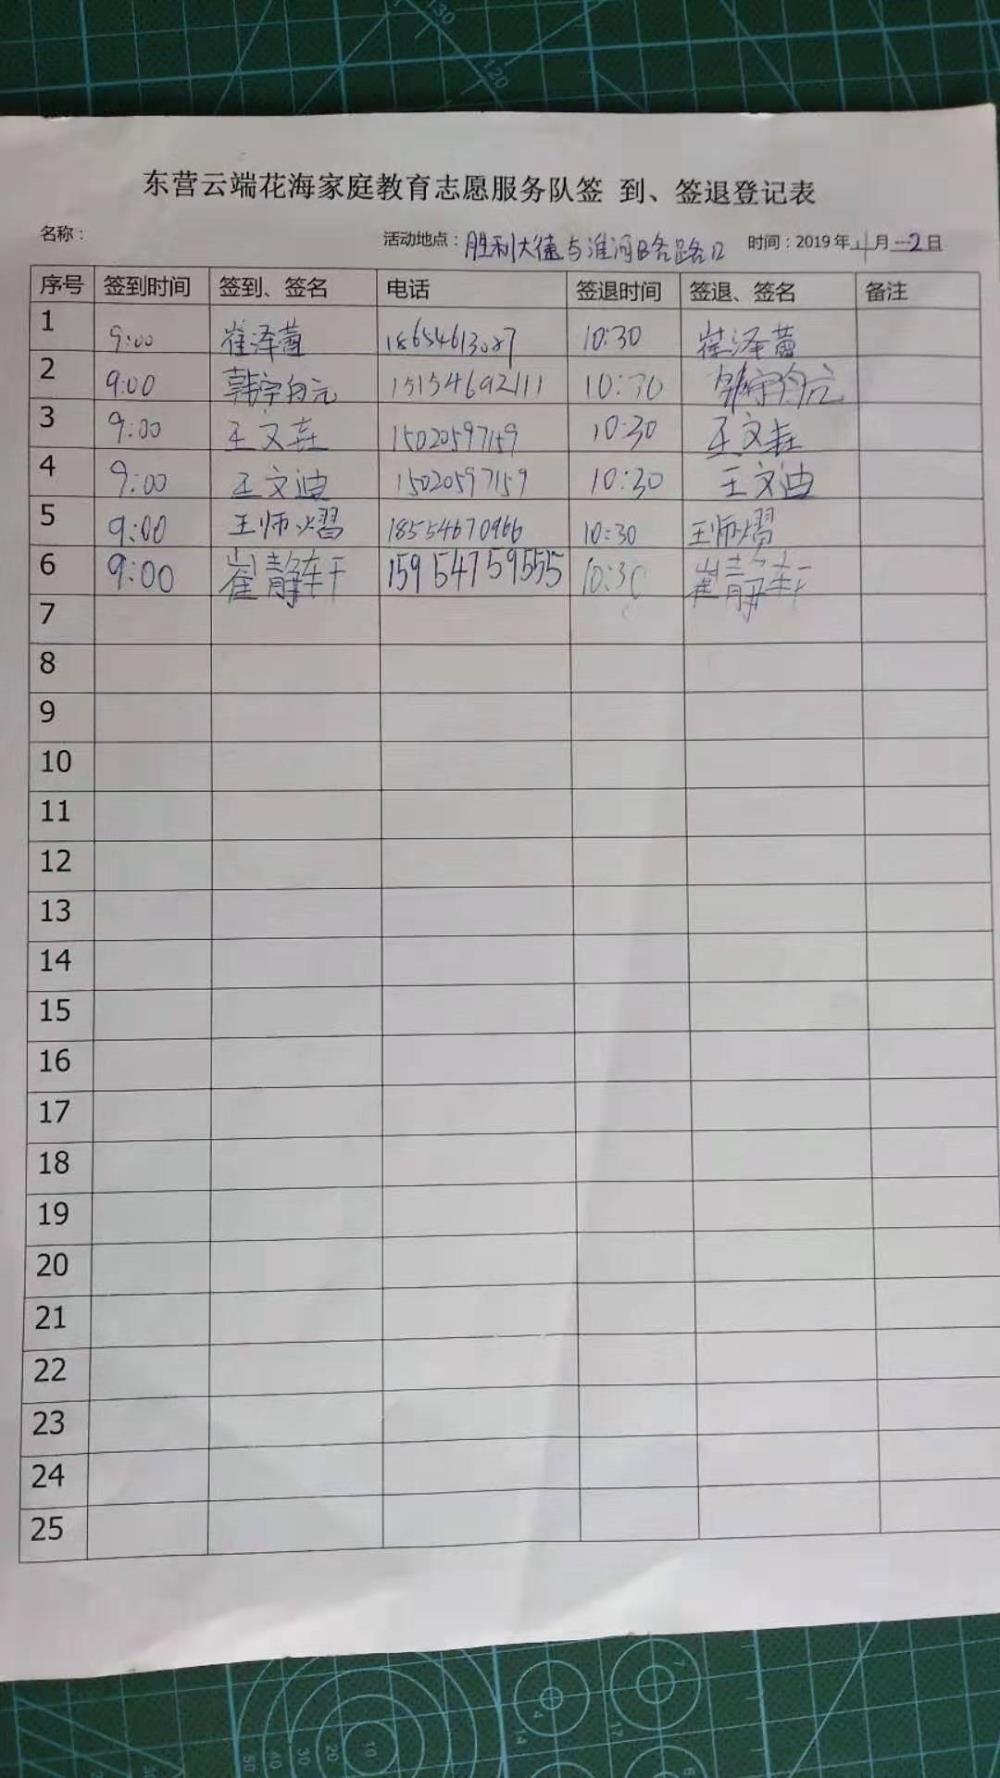 东营云端花海家庭教育志愿服务队签 到、签退登记表
名称： 活动地点：胜利大德与淮河路路口 时间：2019年11月2日
序号 签到时间 签到、签名 电话 签退时间 签退、签名 备注
1 9:00 崔泽萱 18654613087 10:30 崔泽萱
2 9:00 韩宇向元 15154692111 10:30 韩宇向元
3 9:00 王文垚 15020597159 10:30 王文垚
4 9:00 王文迪 15020597159 10:30 王文迪
5 9:00 王师熠 18554670966 10:30 王师熠
6 9:00 崔静轩 15954759555 10:30 崔静轩
7
8
9
10
11
12
13
14
15
16
17
18
19
20
21
22
23
24
25